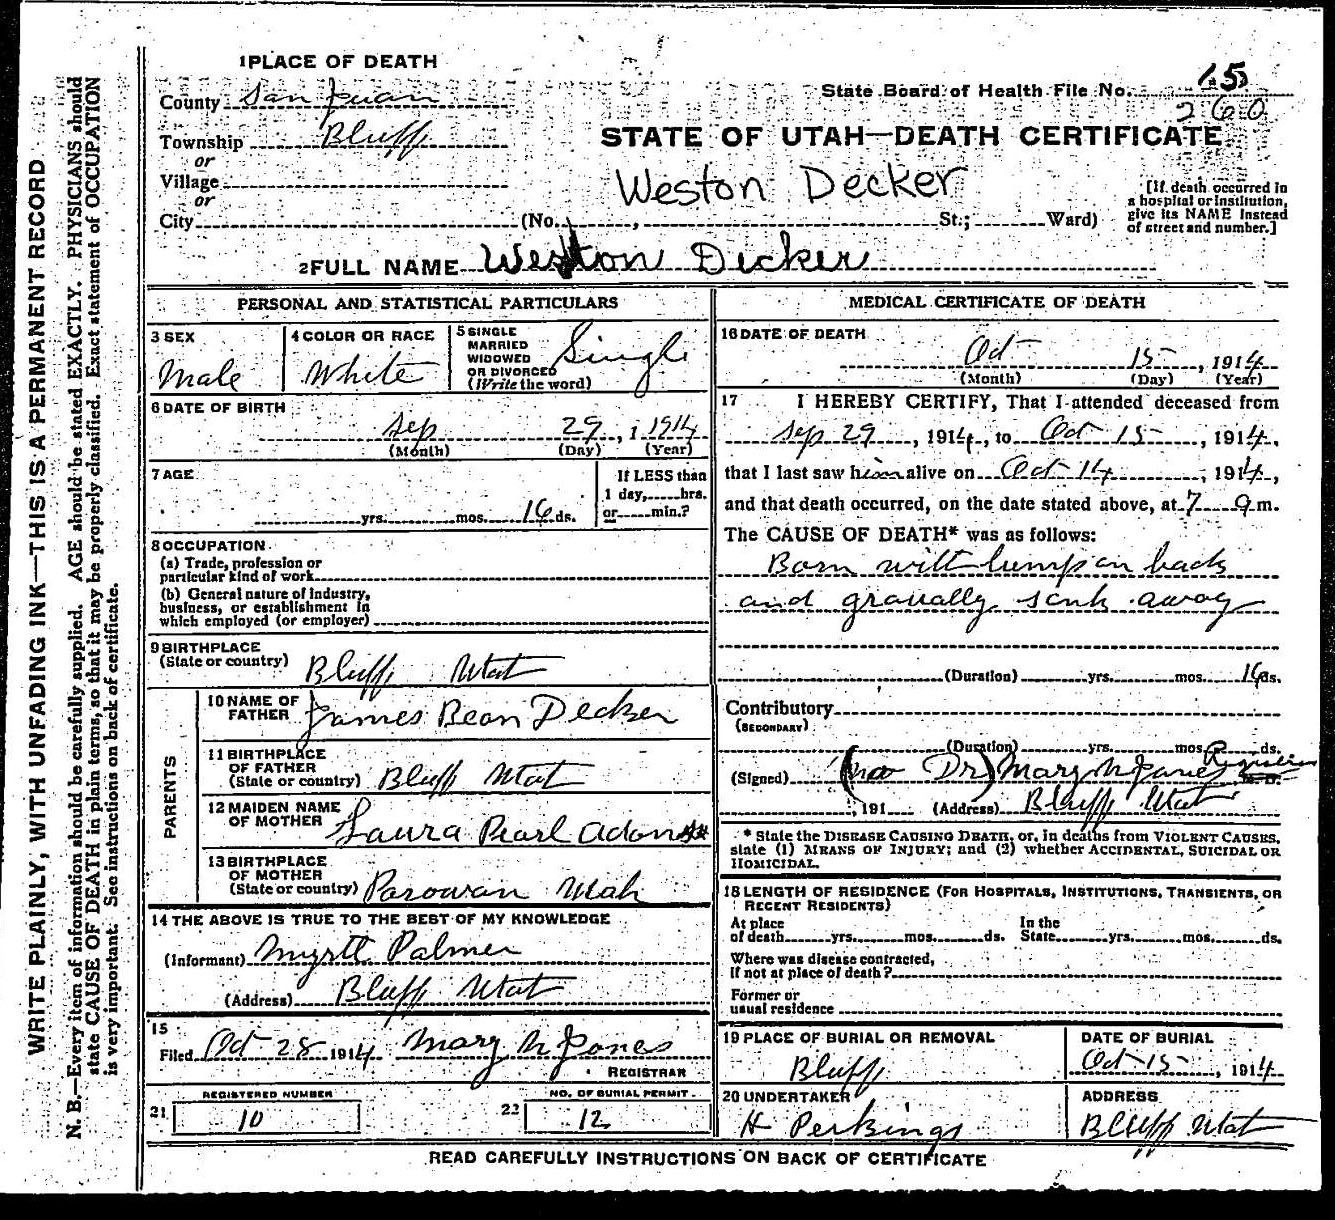 WRITE PLAINLY, WITH UNFADING INK—THIS IS A PERMANENT RECORD
N. B.—Every item of information should be carefully supplied. AGE should be stated EXACTLY. PHYSICIANS should
state CAUSE OF DEATH in plain terms, so that it may be properly classified. Exact statement of OCCUPATION
is very important. See instructions on back of certificate.
1 PLACE OF DEATH
County San Juan
Township Bluff
or
Village
or
City (No. , St.; Ward)
State Board of Health File No. 15
260
STATE OF UTAH—DEATH CERTIFICATE
Weston Decker
[If death occurred in
a hospital or institution,
give its NAME instead
of street and number.]
2 FULL NAME Weston Decker
PERSONAL AND STATISTICAL PARTICULARS
3 SEX
Male
4 COLOR OR RACE
White
5 SINGLE
MARRIED
WIDOWED
OR DIVORCED
(Write the word)
Single
6 DATE OF BIRTH
Sep 29, 1 1914
(Month) (Day) (Year)
7 AGE
yrs. mos. 16 ds.
If LESS than
1 day, hrs.
or min.?
8 OCCUPATION
(a) Trade, profession or
particular kind of work
(b) General nature of industry,
business, or establishment in
which employed (or employer)
9 BIRTHPLACE
(State or country) Bluff Utah
PARENTS
10 NAME OF
FATHER James Bean Decker
11 BIRTHPLACE
OF FATHER
(State or country) Bluff Utah
12 MAIDEN NAME
OF MOTHER Laura Pearl Adams
13 BIRTHPLACE
OF MOTHER
(State or country) Parowan Utah
14 THE ABOVE IS TRUE TO THE BEST OF MY KNOWLEDGE
(Informant) Myrtt Palmer
(Address) Bluff Utah
15
Filed Oct 28 1914 Mary N Jones
REGISTRAR
REGISTERED NUMBER
21 10
NO. OF BURIAL PERMIT
22 12
MEDICAL CERTIFICATE OF DEATH
16 DATE OF DEATH
Oct 15, 1914
(Month) (Day) (Year)
17 I HEREBY CERTIFY, That I attended deceased from
Sep 29, 1914, to Oct 15, 1914,
that I last saw him alive on Oct 14, 1914,
and that death occurred, on the date stated above, at 7 a m.
The CAUSE OF DEATH* was as follows:
Born with lump on back
and gravally sink away
(Duration) yrs. mos. 16 ds.
Contributory
(SECONDARY)
(Duration) yrs. mos. ds.
(Signed) (no Dr) Mary N Jones Registrar
, 191 (Address) Bluff Utah
* State the DISEASE CAUSING DEATH, or, in deaths from VIOLENT CAUSES,
state (1) MEANS OF INJURY; and (2) whether ACCIDENTAL, SUICIDAL OR
HOMICIDAL.
18 LENGTH OF RESIDENCE (FOR HOSPITALS, INSTITUTIONS, TRANSIENTS, OR
RECENT RESIDENTS)
At place
of death yrs. mos. ds.
In the
State yrs. mos. ds.
Where was disease contracted,
If not at place of death?
Former or
usual residence
19 PLACE OF BURIAL OR REMOVAL
Bluff
DATE OF BURIAL
Oct 15, 1914
20 UNDERTAKER
H Perkings
ADDRESS
Bluff Utah
READ CAREFULLY INSTRUCTIONS ON BACK OF CERTIFICATE